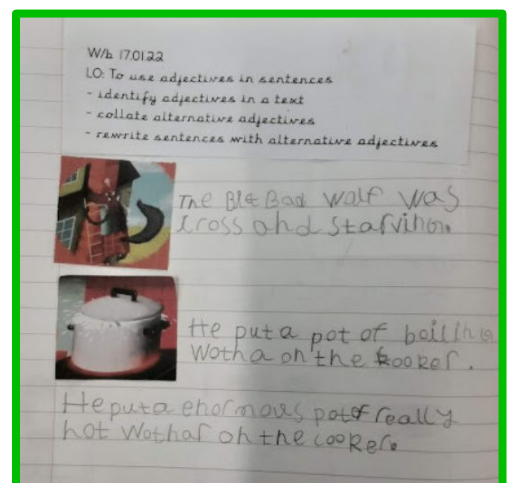 W/b 17.01.22
LO: To use adjectives in sentences
- identify adjectives in a text
- collate alternative adjectives
- rewrite sentences with alternative adjectives
The BIG Bad walf was
cross and starving.
He put a pot of boiling
Wotha on the cooker.
He put a enormous pot of really
hot wothar on the cooker.